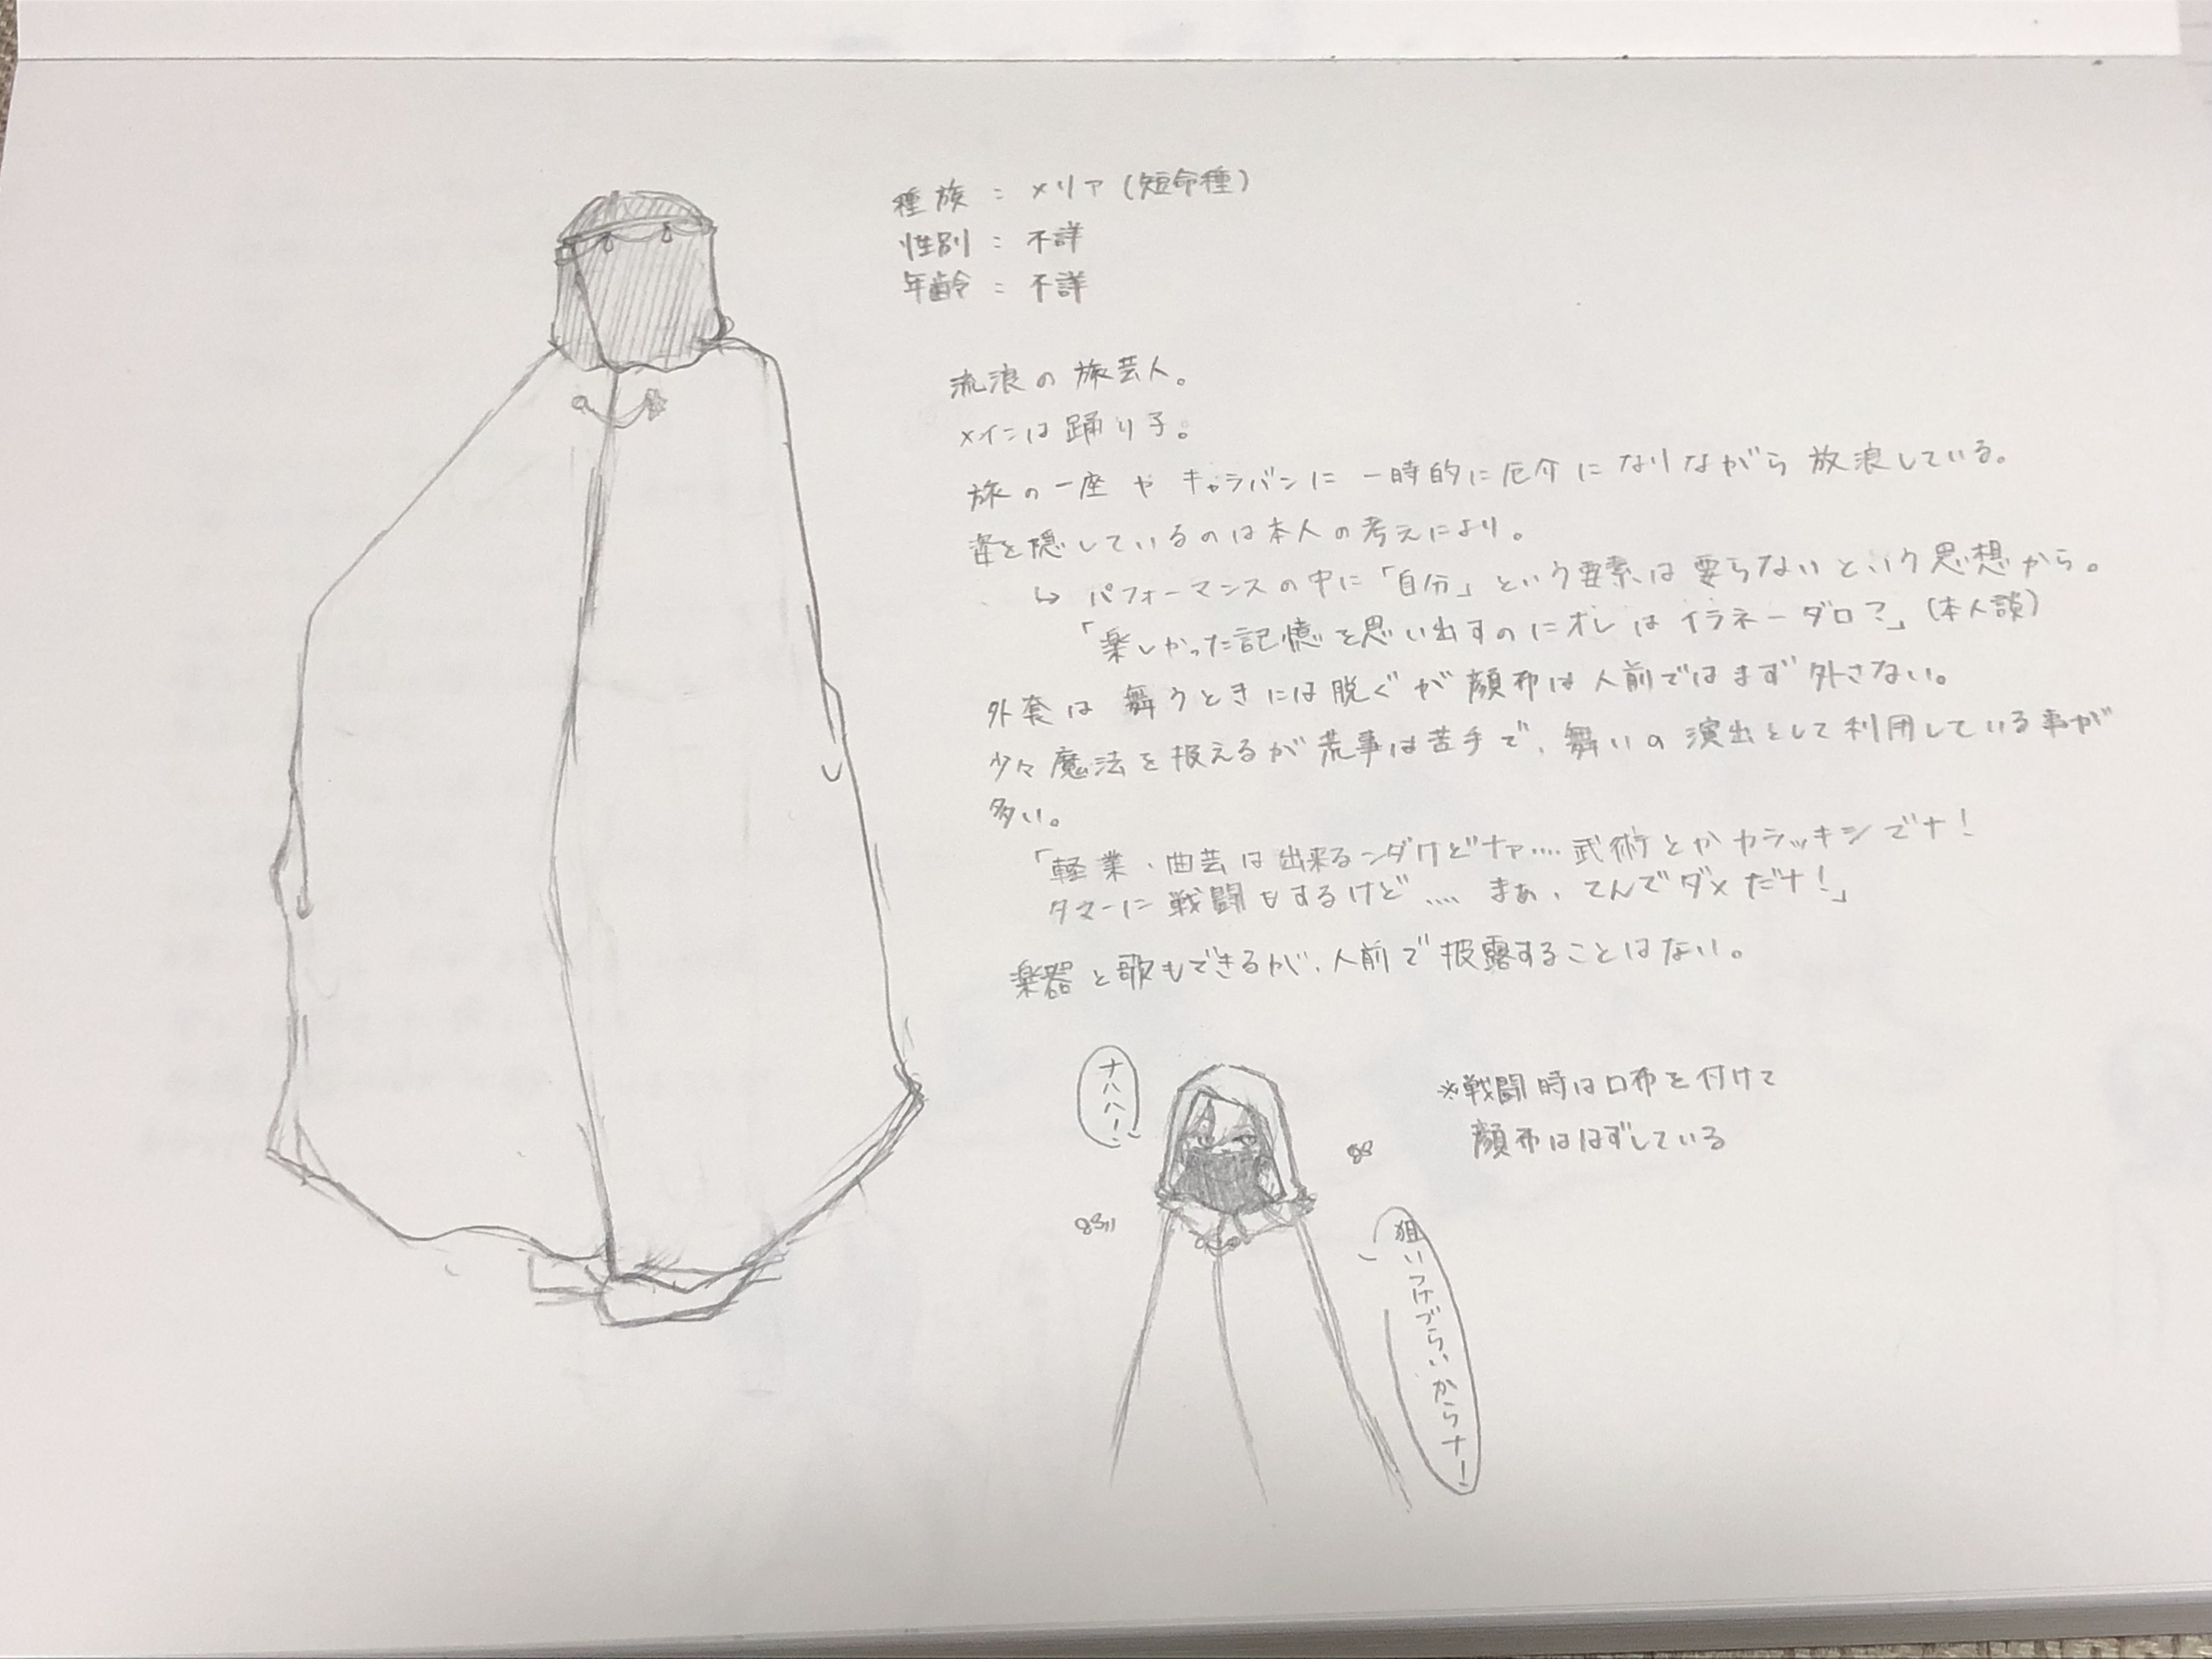 種族：メリア(短命種)
性別：不詳
年齢：不詳
流浪の旅芸人。
メインは踊り子。
旅の一座やキャラバンに一時的に厄介になりながら放浪している。
姿を隠しているのは本人の考えにより。
↳ パフォーマンスの中に「自分」という要素は要らないという思想から。
「楽しかった記憶を思い出すのにオレはイラネーダロ？」(本人談)
外套は舞うときには脱ぐが顔布は人前ではまず外さない。
少々魔法を扱えるが荒事は苦手で、舞いの演出として利用している事が
多い。
「軽業・曲芸は出来るンダけどナァ....武術とかカラッキシでナ！
タマーに戦闘もするけど....まぁ、てんでダメだナ！」
楽器と歌もできるが、人前で披露することはない。
ナハハ！
※戦闘時は口布を付けて
顔布ははずしている
狙いつけづらいからナ！